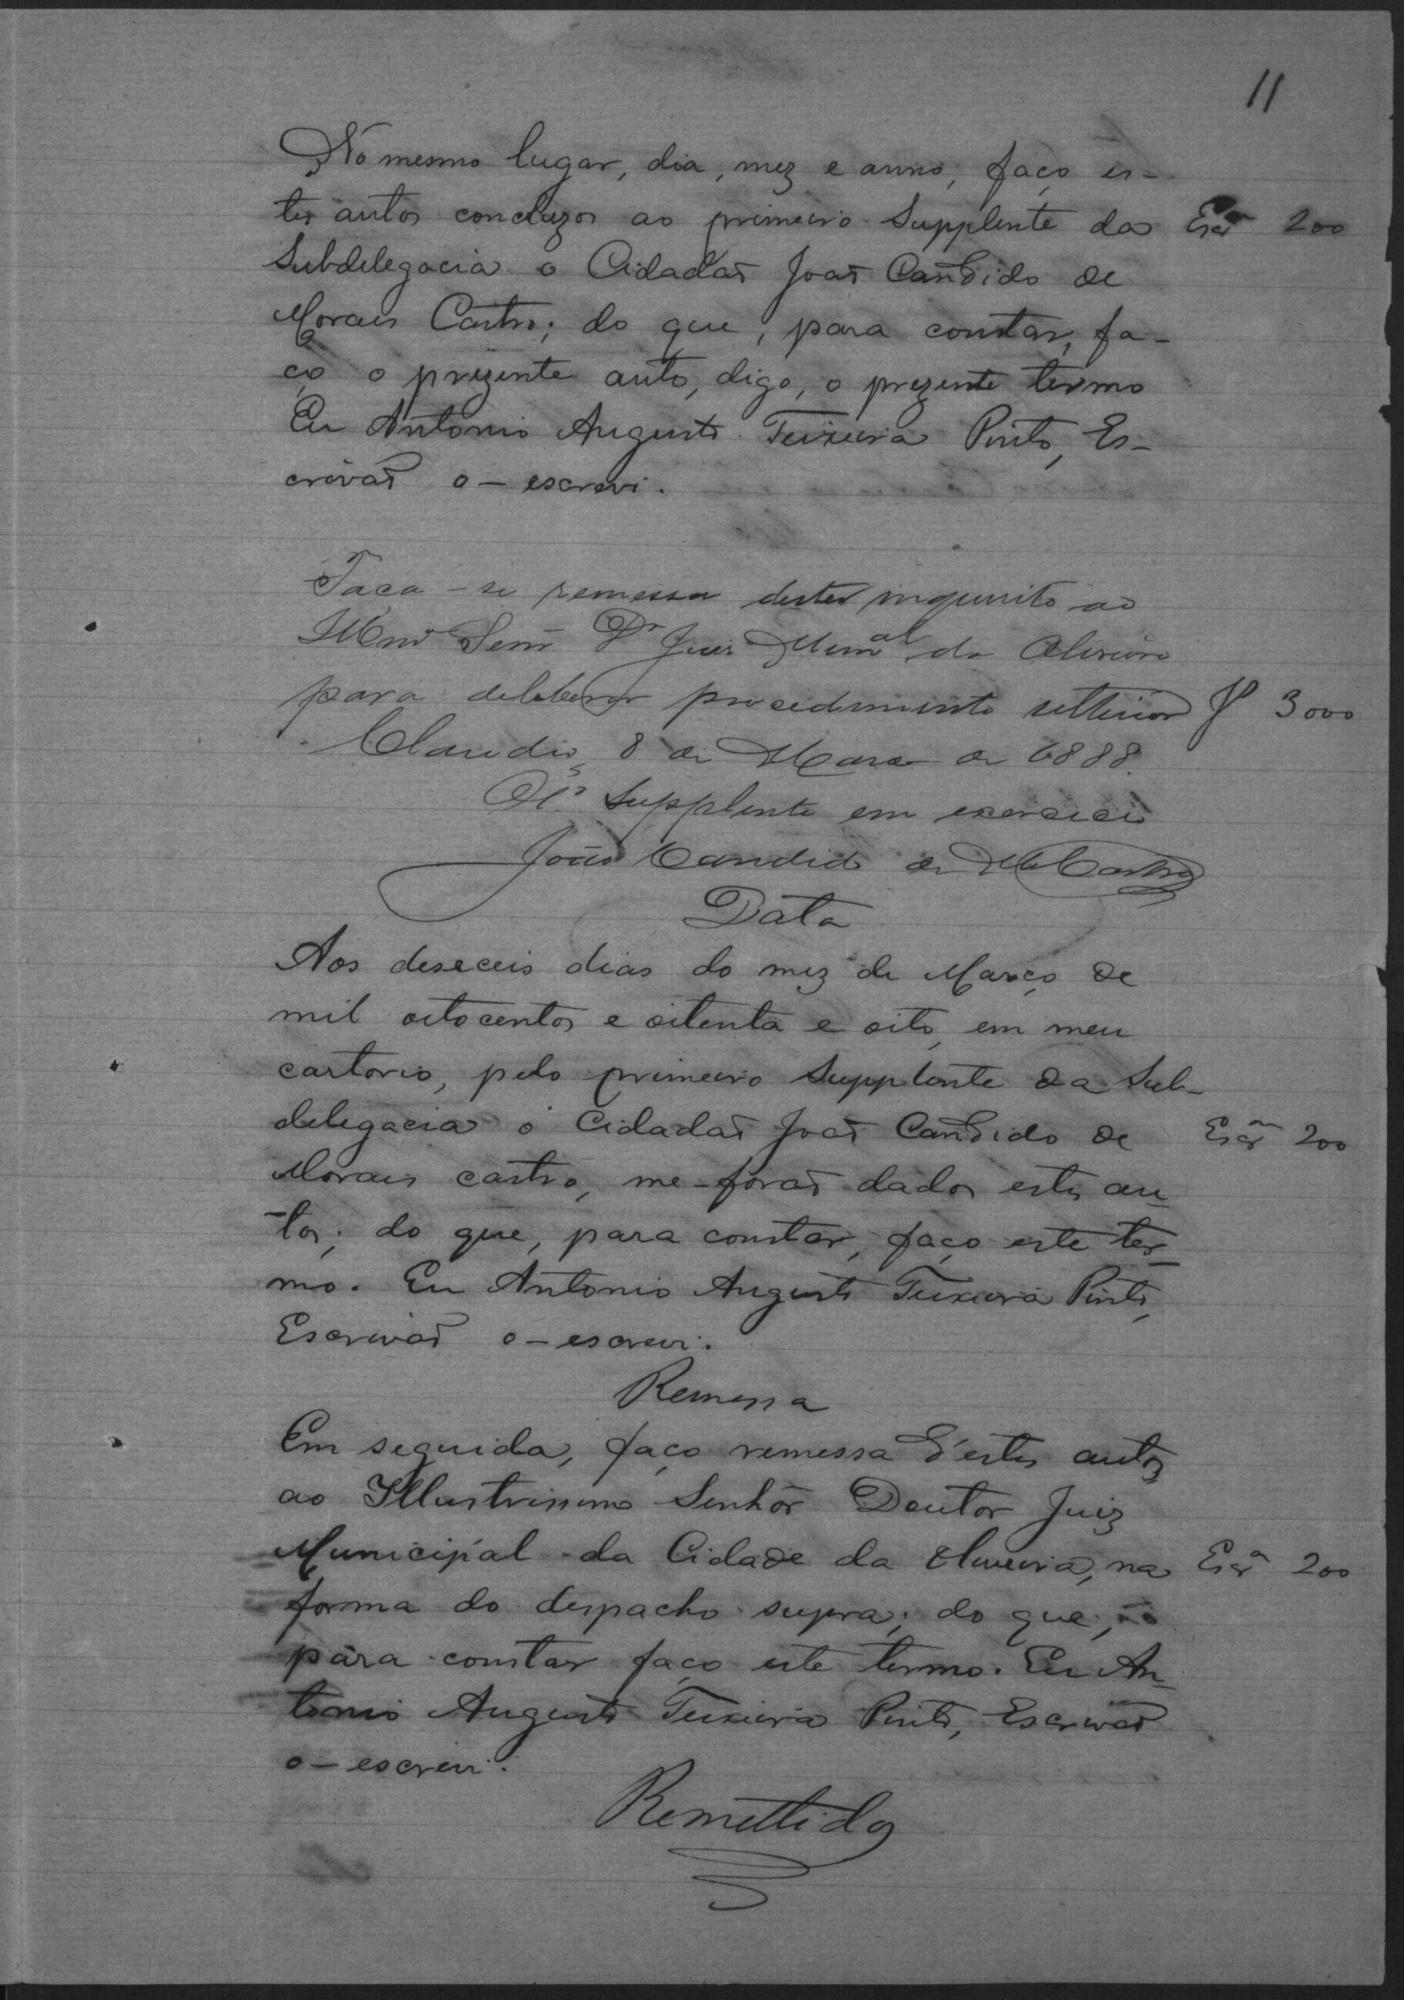 11
No mesmo lugar, dia, mez e anno, faço es-
tes autos concluzos ao primeiro Supplente da Escam 200
Subdelegacia o Cidadaõ Joaõ Candido de
Moraes Castro; do que, para constar, fa-
ço o prezente auto, digo, o prezente termo
Eu Antonio Augusto Teixeira Pinto, Es-
crivaõ o-escrevi.
Faca-se remessa destes inquerito ao
Illmo Senr Dr Juis Munal da Oliveira
para deliberar procedimento ulterior J 3000
Claudio, 8 de Março de 1888.
O 1º Supplente em exercicio
João Candido de M Castro
Data
Aos deseceis dias do mez de Março de
mil oitocentos e oitenta e oito, em meu
cartorio, pelo primeiro Supplente da Sub-
delegacia o Cidadaõ Joaõ Candido de Escam 200
Moraes Castro, me-foraõ dados estes au-
tos; do que, para constar, faço este ter-
mo. Eu Antonio Augusto Teixeira Pinto,
Escrivaõ o-escrevi.
Remessa
Em seguida, faço remessa d'estes autos
ao Illustrissimo Senhor Doutor Juiz
Municipal da Cidade da Oliveira, na Escam 200
forma do despacho supra; do que,
para constar faço este termo. Eu An-
tonio Augusto Teixeira Pinto, Escrivaõ
o-escrevi.
Remettidos